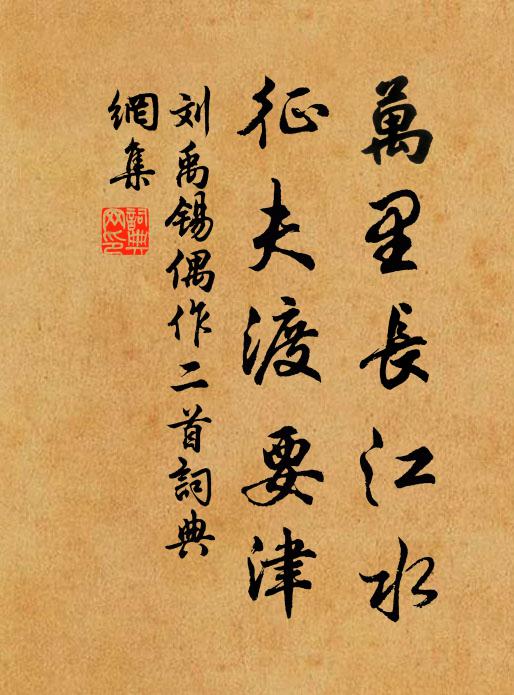 萬里長江水
征夫渡要津
刘禹锡偶作二首詞典
網集
詞典
网印